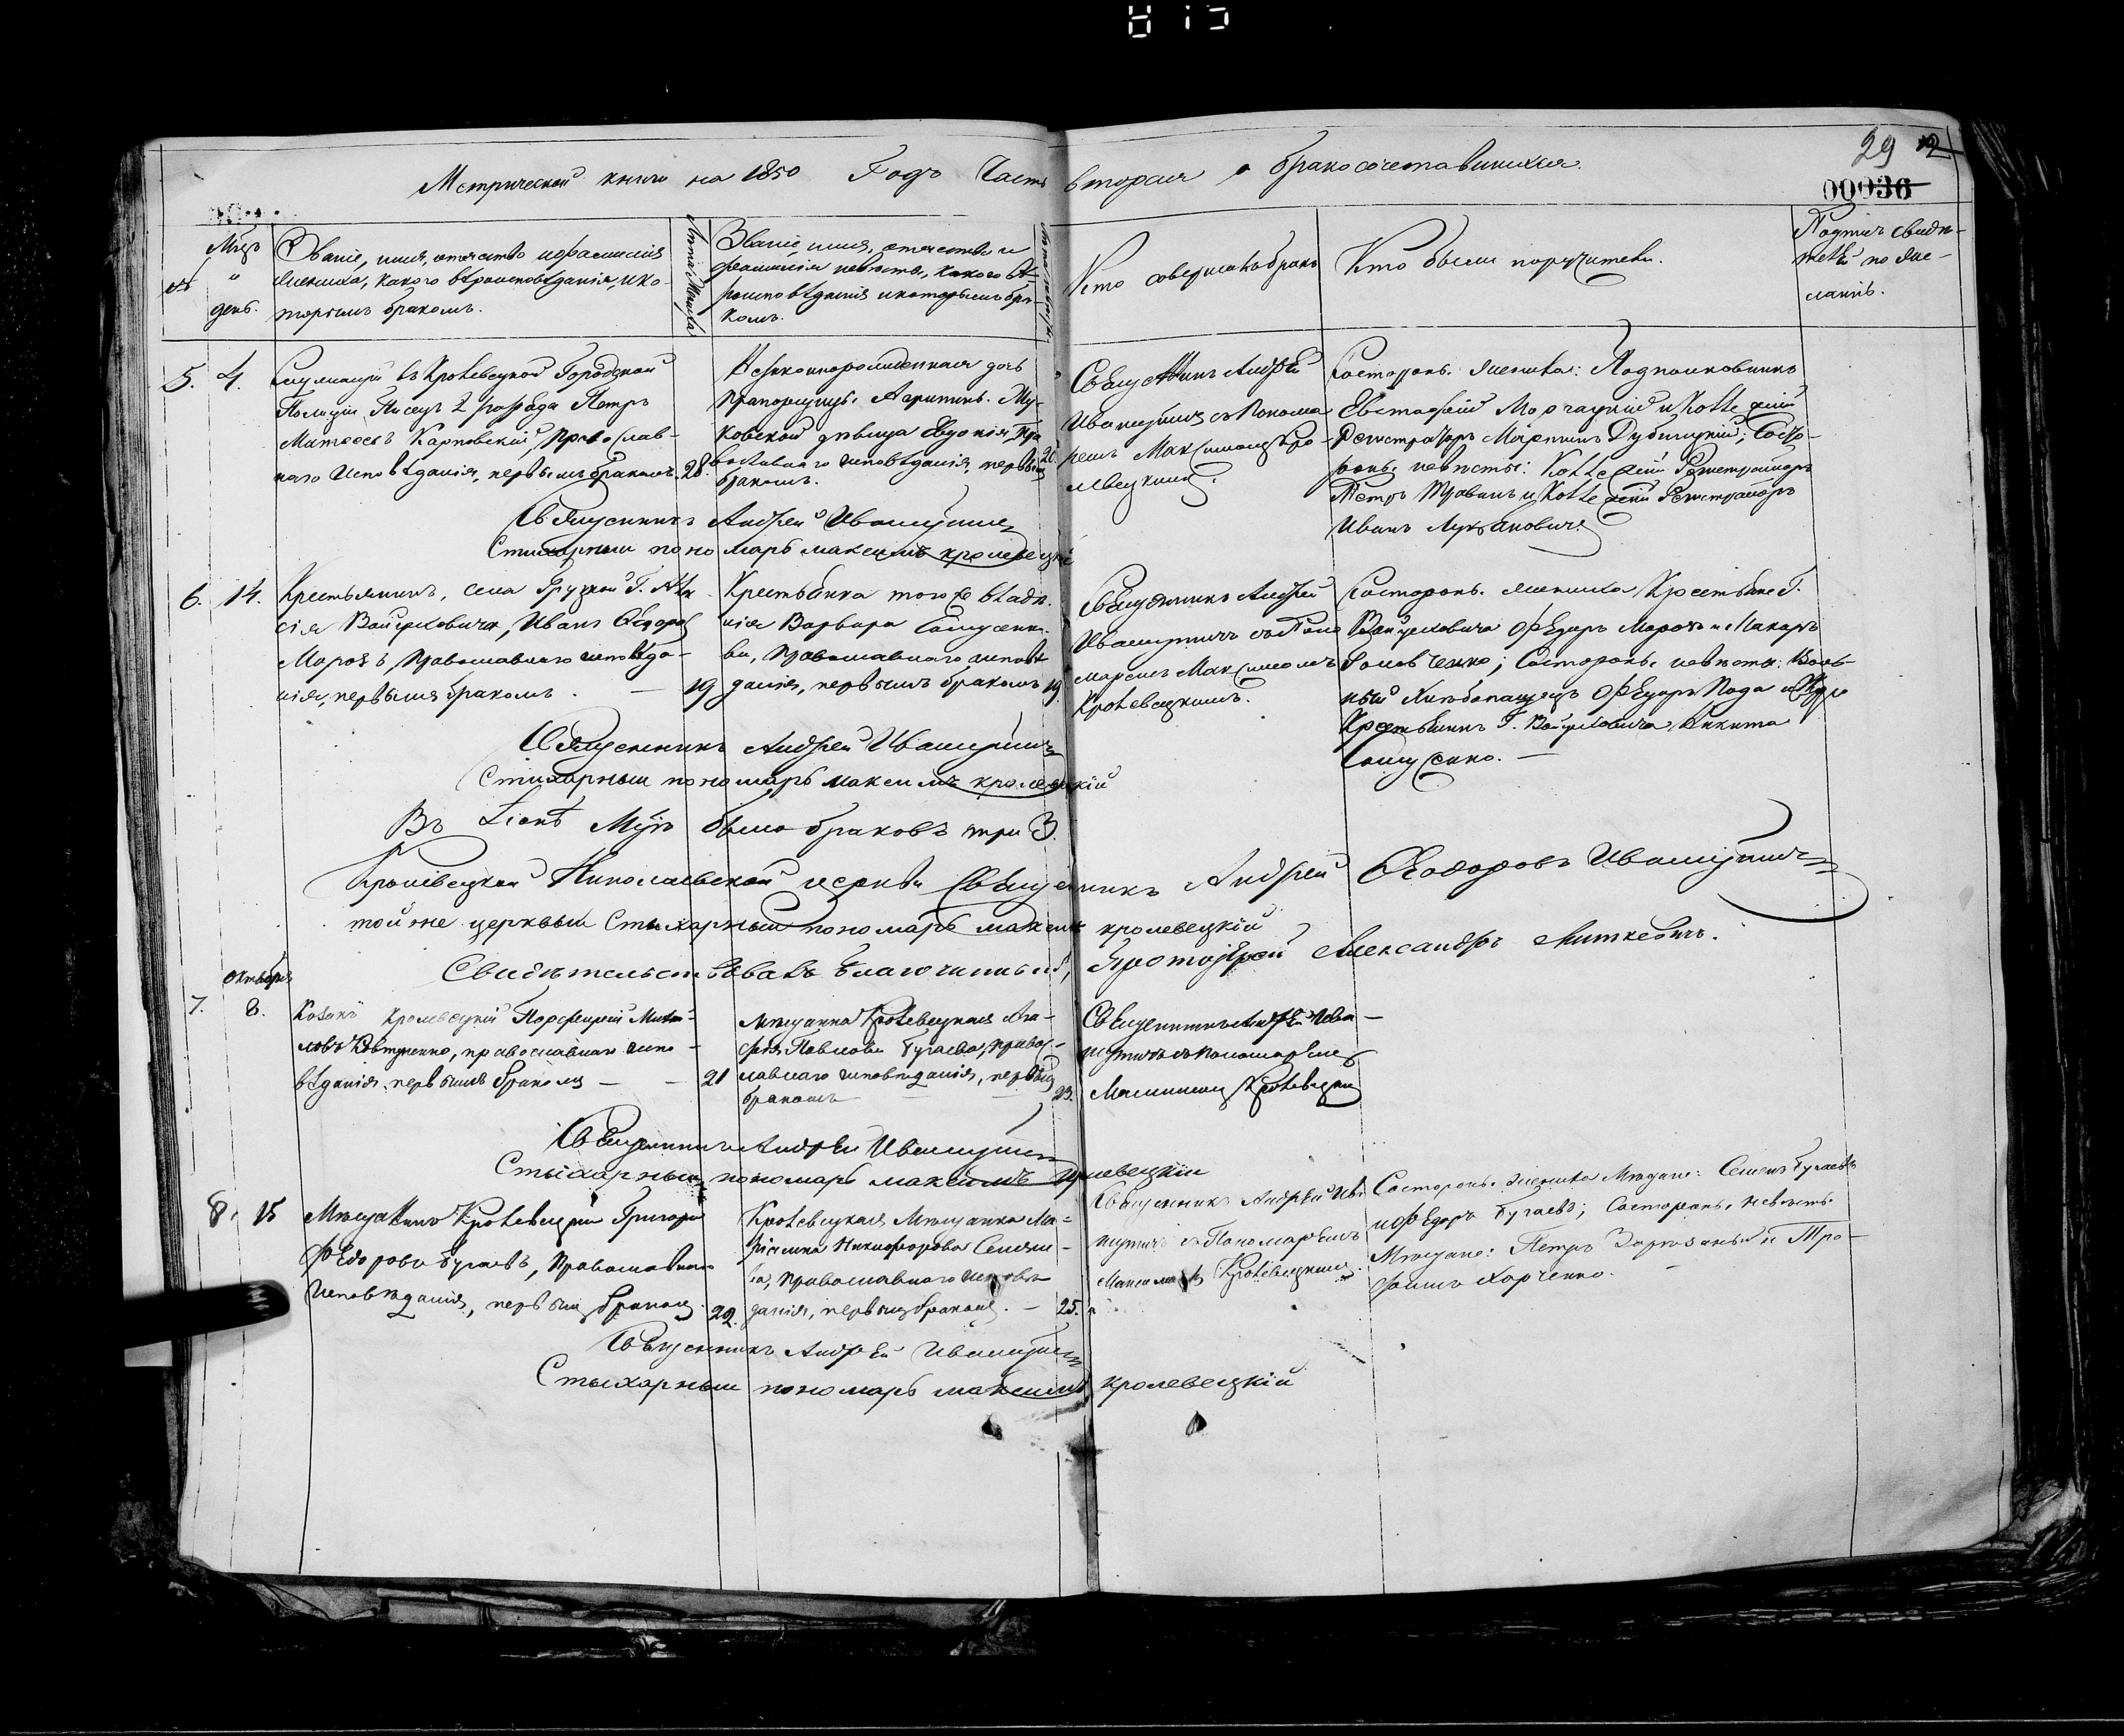 29
00036
Метрической книги на 1850 Годъ Часть вторая о бракосочетавшихся.
№
Мцъ
"
день.
Званіе, имя, отечество и фамилія
жениха, какого вѣроисповѣданія, и ко-
торымъ бракомъ.
Лѣта жениха
Званіе имя, отечество и
фамилія невѣсты, какого вѣ-
роисповѣданія и которымъ бра-
комъ.
Кто совершалъ бракъ
Кто были поручители.
Подпись свидѣ-
телей по же-
ланію.
5. 4.
Служащій въ Кролевецкой Городской
Полиціи Писецъ 2 разряда Петръ
Матвеевъ Карповскій, Православ-
наго исповѣданія, первымъ бракомъ. 28.
дочь
Прапорщицы
девица Евдокія Пра
вославнаго исповѣданія, первымъ
бракомъ.
Священникъ Андрей
Ивашутичъ съ Понома
ремъ Максимомъ Кро-
левецкимъ.
Состороны жениха: Подполковникъ
Евстафій и Коллежскій
Регистраторъ Дубицкій; Состо-
роны невѣсты: Коллежскій Регистраторъ
Петръ и Коллежскій Регистраторъ
Иванъ
Священникъ Андрей Ивашутичъ
Стихарный пономарь максимъ кролевецкій
6. 14.
Крестьянинъ, села Грузкой Г. Але
сія Войцеховича, Иванъ Ѳедоровъ
Морозъ, Православнаго исповѣда-
нія, первымъ бракомъ. — 19
Крестьянка того же владѣ-
нія Варвара
ва, Православнаго исповѣ
данія, первымъ бракомъ 19.
Священникъ Андрей
Ивашутичъ съ Поно
маремъ Максимомъ
Кролевецкимъ.
Состороны жениха Крестьяне Г.
Войцеховича Федоръ Морозъ и Макаръ
; Состороны невѣсты: Воль-
ный Хлѣбопашецъ Федоръ
Крестьянинъ Г. Войцеховича Никита
Священникъ Андрей Ивашутичъ
Стихарный пономарь максимъ кролевецкій
Въ Іюнѣ Мцѣ было браковъ три 3.
Кролевецкой Николаевской церкви Священникъ Андрей Ѳеодоровъ Ивашутичъ
той же церквы Стыхарный пономарь максимъ кролевецкій
Свидѣтельствовалъ Благочинный, Протоіерей Александръ Миткевичъ.
октября
7. 8.
Козакъ Кролевецкій Порфирій
Евтушенко, православнаго испо-
вѣданія, первымъ бракомъ — — 21
Мѣщанка Кролевецкая Ага-
фія Павлова Бугаева, Право-
славнаго исповѣданія, первымъ
бракомъ 23.
Священникъ Андрей Ива-
шутичъ съ пономаремъ
Максимомъ Кролевецкимъ
Священникъ Андрей Ивашутичъ
Стыхарный пономарь максимъ кролевецкій
8. 15
Мѣщанинъ Кролевецкій Григорій
Федоровъ Бугаевъ, Православнаго
исповѣданія, первымъ бракомъ. 22.
Кролевецкая Мѣщанка Ма-
Никифорова
ва, Православнаго исповѣ
данія, первымъ бракомъ. — 25.
Священникъ Андрей Ива
шутичъ съ Пономаремъ
Максимомъ Кролевецкимъ.
Состороны жениха Мѣщане: Семенъ Бугаевъ
и Федоръ Бугаевъ; Состороны невѣсты
Мѣщане: Петръ и Тро-
фимъ Харченко.
Священникъ Андрей Ивашутичъ
Стыхарный пономарь максимъ кролевецкій